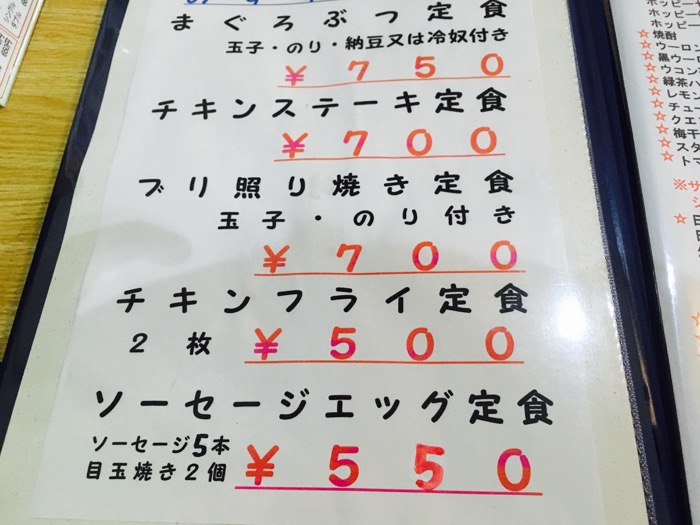 まぐろぶつ定食
玉子・のり・納豆又は冷奴付き
¥750
チキンステーキ定食
¥700
ブリ照り焼き定食
玉子・のり付き
¥700
チキンフライ定食
2枚 ¥500
ソーセージエッグ定食
ソーセージ5本
目玉焼き2個 ¥550
ホッピー
ホッピー
☆焼酎
☆ウーロン
☆黒ウーロ
☆ウコン
☆緑茶ハ
☆レモン
☆チュー
☆クエン
☆梅干
☆スタ
☆トマ